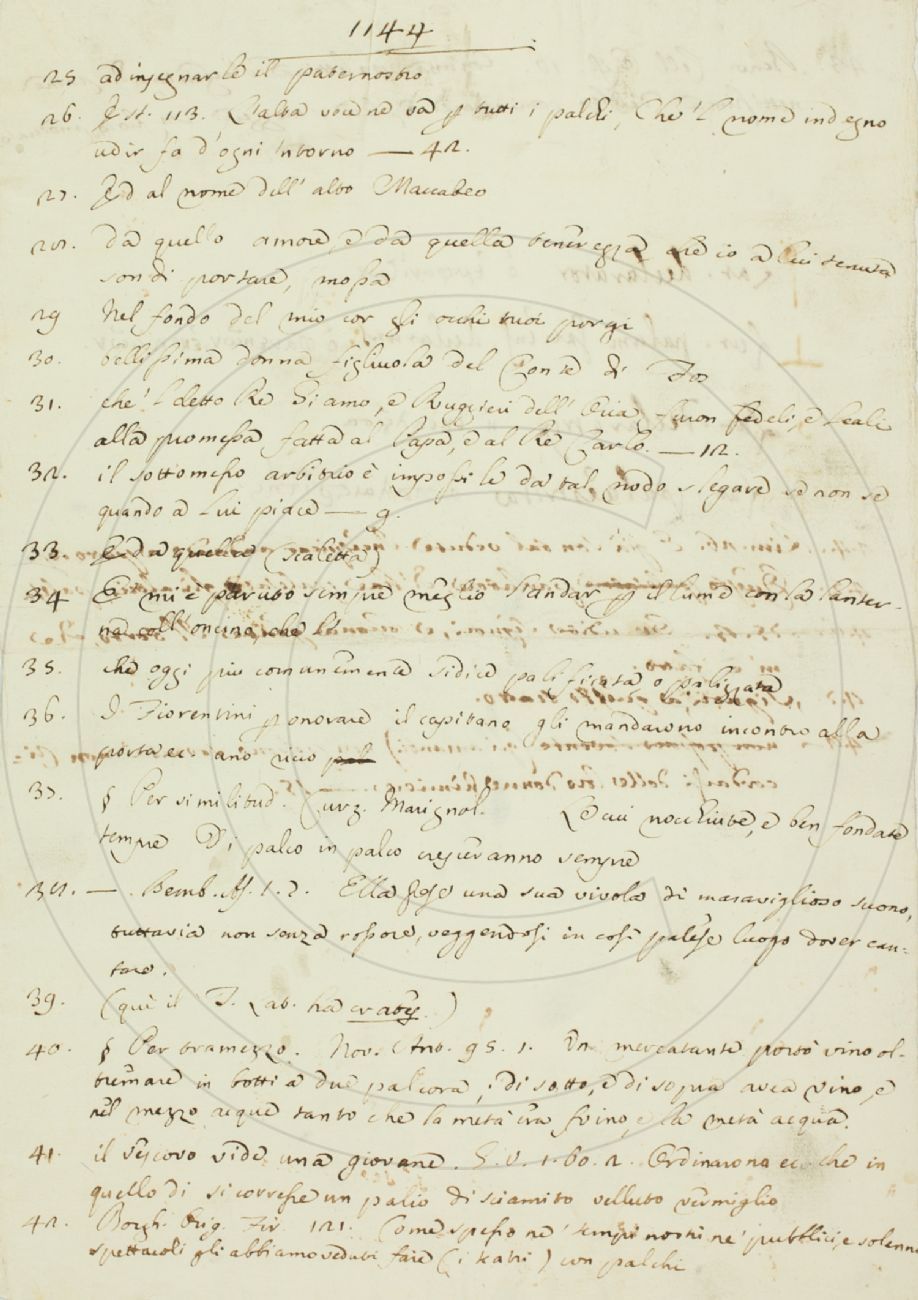 1144
25 ad insegnarle il paternostro
26. E st. 113. L'alta voce ne va p tutti i palchi, Che 'l nome indegno
udir fa d'ogni intorno — 42.
27. Ed al nome dell' alto Maccabeo
28. da quello amore, e da quella tenerezza che io a lui tenuta
son di portare, mossa
29 Nel fondo del mio cor gli occhi tuoi porgi
30. bellissima donna figliuola del Conte di
31. che 'l detto Re Giamo, e Ruggieri dell' Oria furon fedeli, e leali
alla promessa fatta al Papa, e al Re Carlo. — 12.
32. il sottomesso arbitrio è impossibile da tal nodo slegare se non se
quando a lui piace — 9.
33 Ed a quelle (scaletta)
34 E' mi è paruto sempre meglio andar p il lume con la lanter-
na coll' oncino, che
35. che oggi più comunemente si dice palificata o palizzata
36. I Fiorentini p onorare il capitano gli mandarono incontro alla
porta ec. ano ricco
37. § Per similitud. Curz. Marignol. Le cui nocchiute, e ben fondate
tempre Di palco in palco cresceranno sempre
38. — . Bemb. As. 1. 7. Ella prese una sua vivola di maraviglioso suono,
tuttavia non senza rossore, veggendosi in così palese luogo dover can-
tare.
39. (qui il T. Lab. ha
40. § Per tramezzo. Nov. Ant. 95. 1. Un mercatante portò vino ol-
tremare in botti a due palcora; di sotto, e di sopra avea vino, e
nel mezzo acqua tanto che la metà era vino, e la metà acqua.
41. il vescovo vide una giovane. G. V. 1. 60. 2. Ordinarono ec. che in
quello di si corresse un palio di sciamito velluto vermiglio
42. Borgh. Orig. Fir. 121. Come spesso ne' tempi nostri ne' pubblici, e solenni
spettacoli gli abbiamo veduti fare (i teatri) con palchi